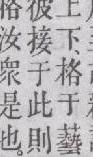 上下、格于藝
彼接于此則
格汝衆是也。